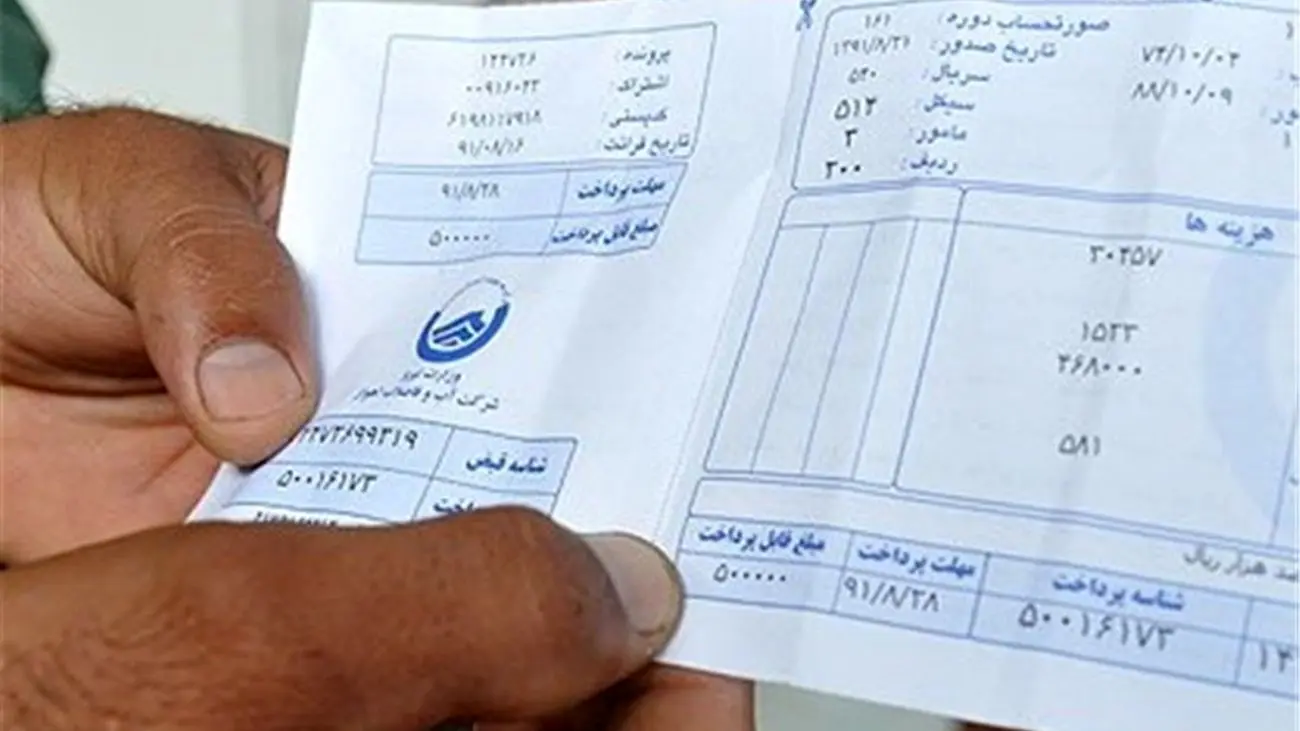 صورتحساب دوره: ۱۶۱
تاریخ صدور: ۱۳۹۱/۸/۲۶
سریال: ۵۴۰
سیکل: ۵۱۲
مامور: ۳
ردیف: ۲۰۰
۷۴/۱۰/۰۴
۸۸/۱۰/۰۹
هزینه ها
۳۰۴۵۷
۱۵۲۳
۴۶۸۰۰۰
۵۸۱
هزار ریال
شناسه پرداخت مهلت پرداخت مبلغ قابل پرداخت
۵۰۰۱۶۱۷۳ ۹۱/۸/۲۸ ۵۰۰۰۰۰
پرونده: ۱۲۴۷۲۶
اشتراک: ۰۰۹۱۶۰۲۳
کدپستی: ۶۱۹۸۱۱۷۹۱۸
تاریخ قرائت: ۹۱/۰۸/۱۶
مهلت پرداخت ۹۱/۸/۲۸
مبلغ قابل پرداخت ۵۰۰۰۰۰
وزارت نیرو
شرکت آب و فاضلاب اهواز
شناسه قبض
۵۰۰۱۶۱۷۳